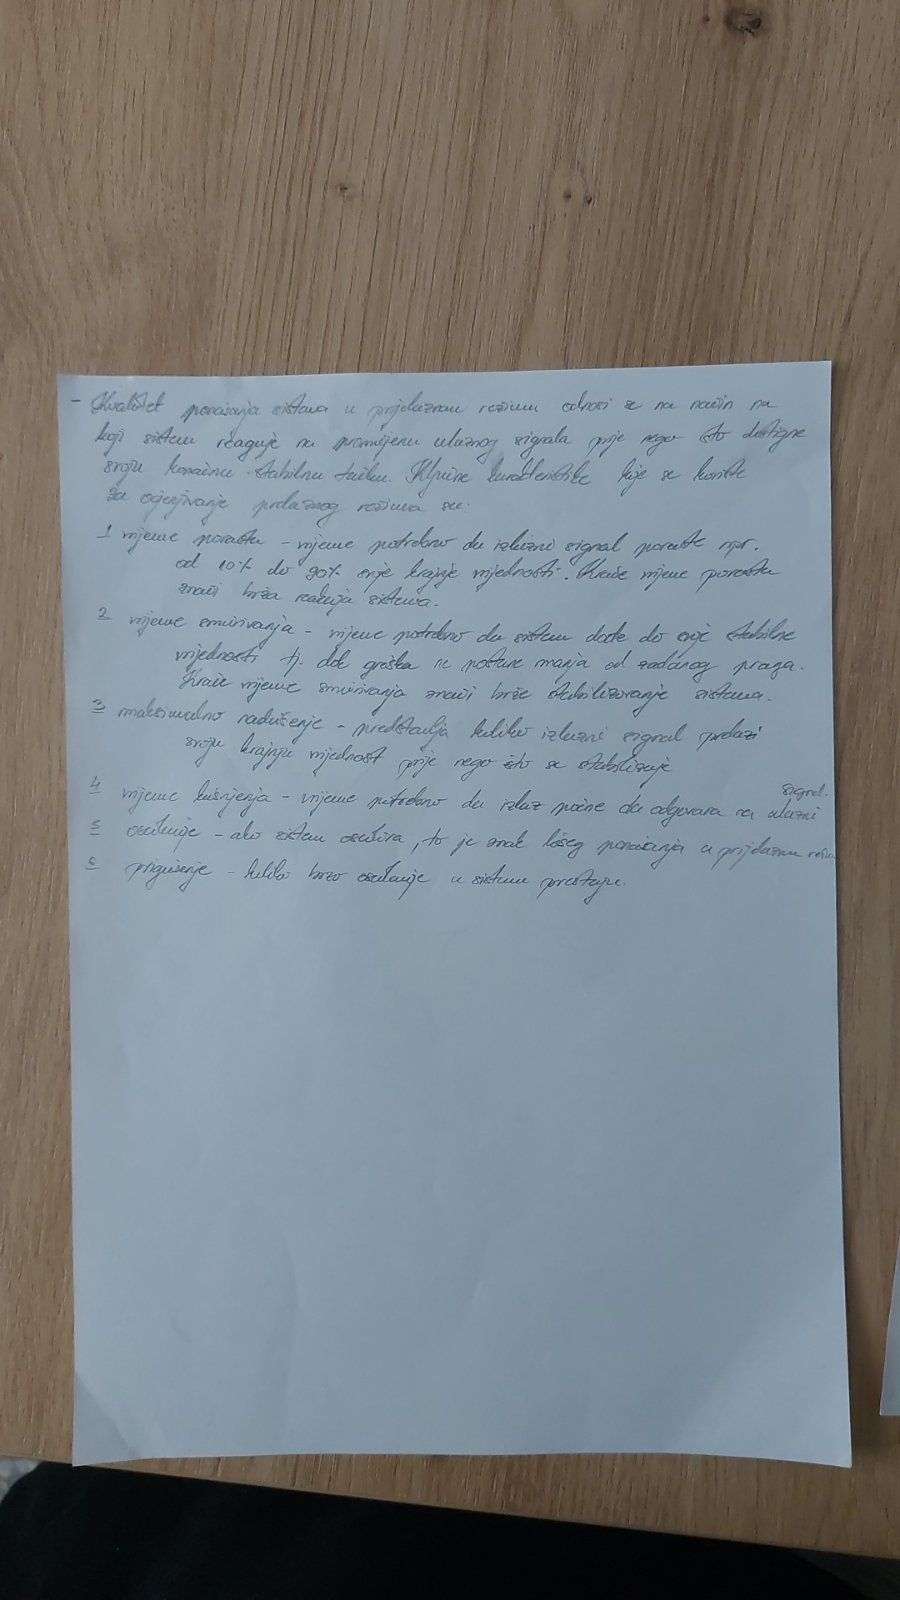 - Kvalitet ponašanja sistema u prijelaznom režimu odnosi se na način na
koji sistem reaguje na promjenu ulaznog signala prije nego što dostigne
svoju konačnu stabilnu tačku. Ključne karakteristike koje se koriste
za ocjenjivanje prelaznog režima su:
1 vrijeme porasta - vrijeme potrebno da izlazni signal poraste npr.
od 10% do 90% svoje krajnje vrijednosti. Kraće vrijeme porasta
znači brža reakcija sistema.
2 vrijeme smirivanja - vrijeme potrebno da sistem dođe do svoje stabilne
vrijednosti tj. dok greška ne postane manja od zadanog praga.
Kraće vrijeme smirivanja znači brže stabilizovanje sistema.
3 maksimalno nadvišenje - predstavlja koliko izlazni signal prelazi
svoju krajnju vrijednost prije nego što se stabilizuje
4 vrijeme kašnjenja - vrijeme potrebno da izlaz počne da odgovara na ulazni signal.
5 oscilacije - ako sistem oscilira, to je znak lošeg ponašanja u prijelaznom
6 prigušenje - koliko brzo oscilacije u sistemu prestaju.